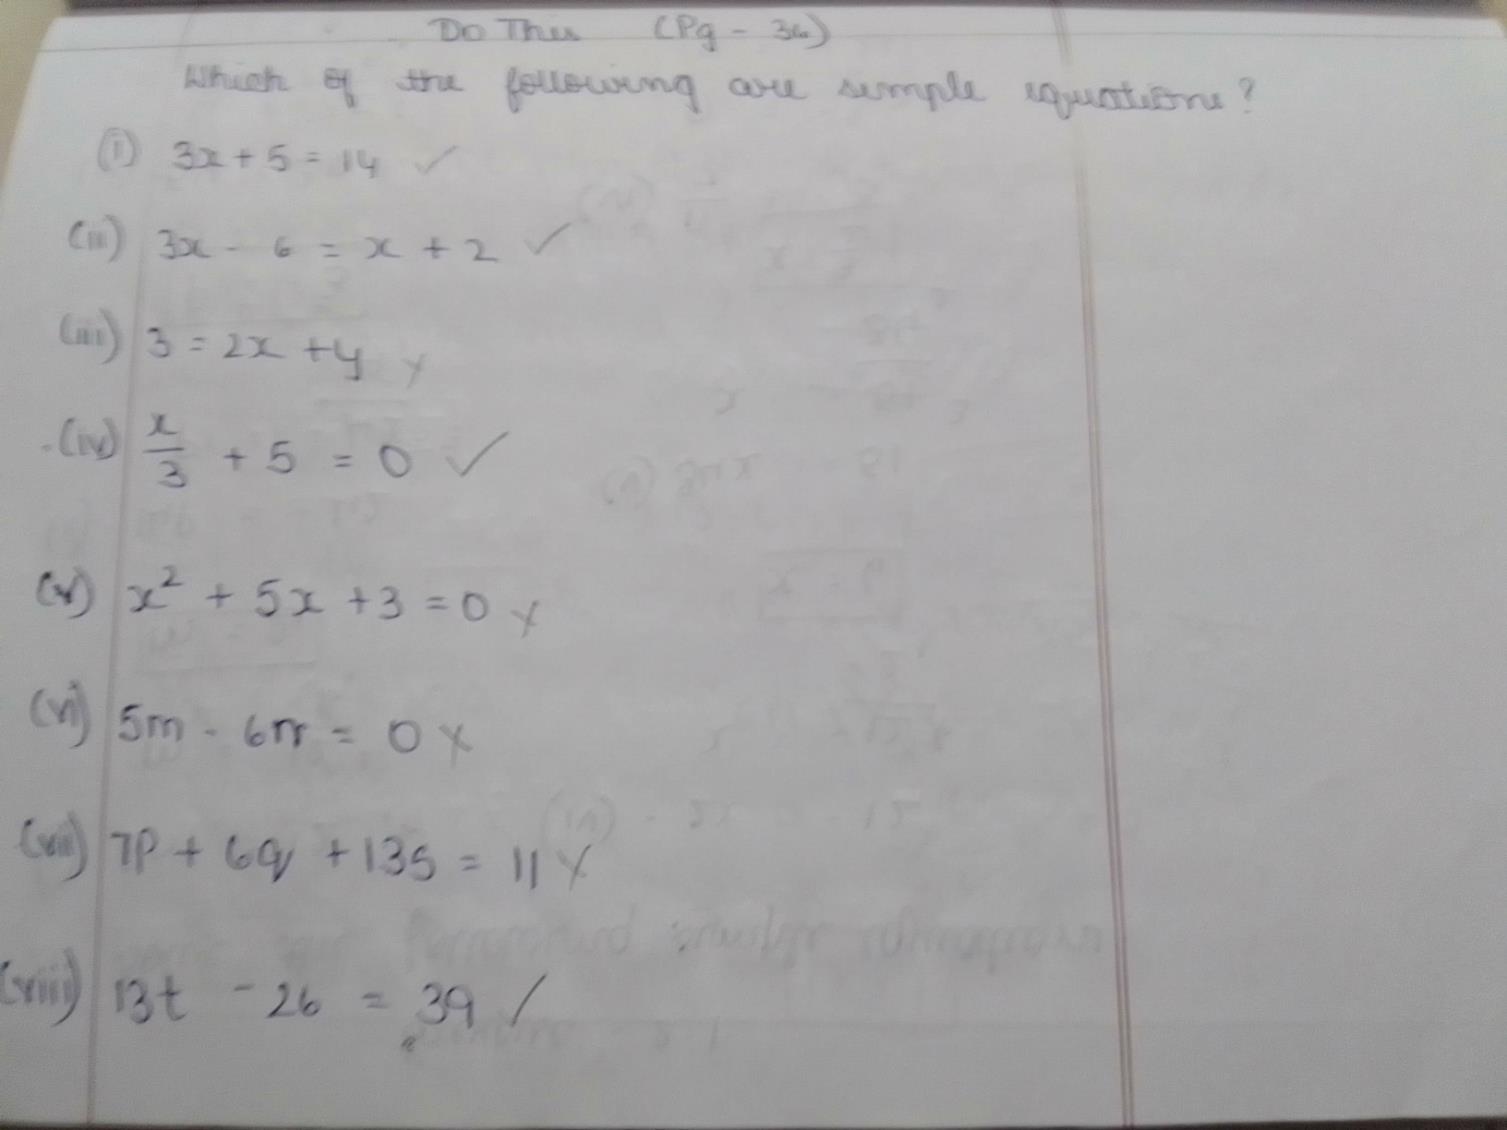 Do This (Pg - 36)
Which of the following are simple equations?
(i) 3x + 5 = 14 ✓
(ii) 3x - 6 = x + 2 ✓
(iii) 3 = 2x + y ×
(iv) x/3 + 5 = 0 ✓
(v) x² + 5x + 3 = 0 ×
(vi) 5m - 6n = 0 ×
(vii) 7p + 6q + 13s = 11 ×
(viii) 13t - 26 = 39 ✓